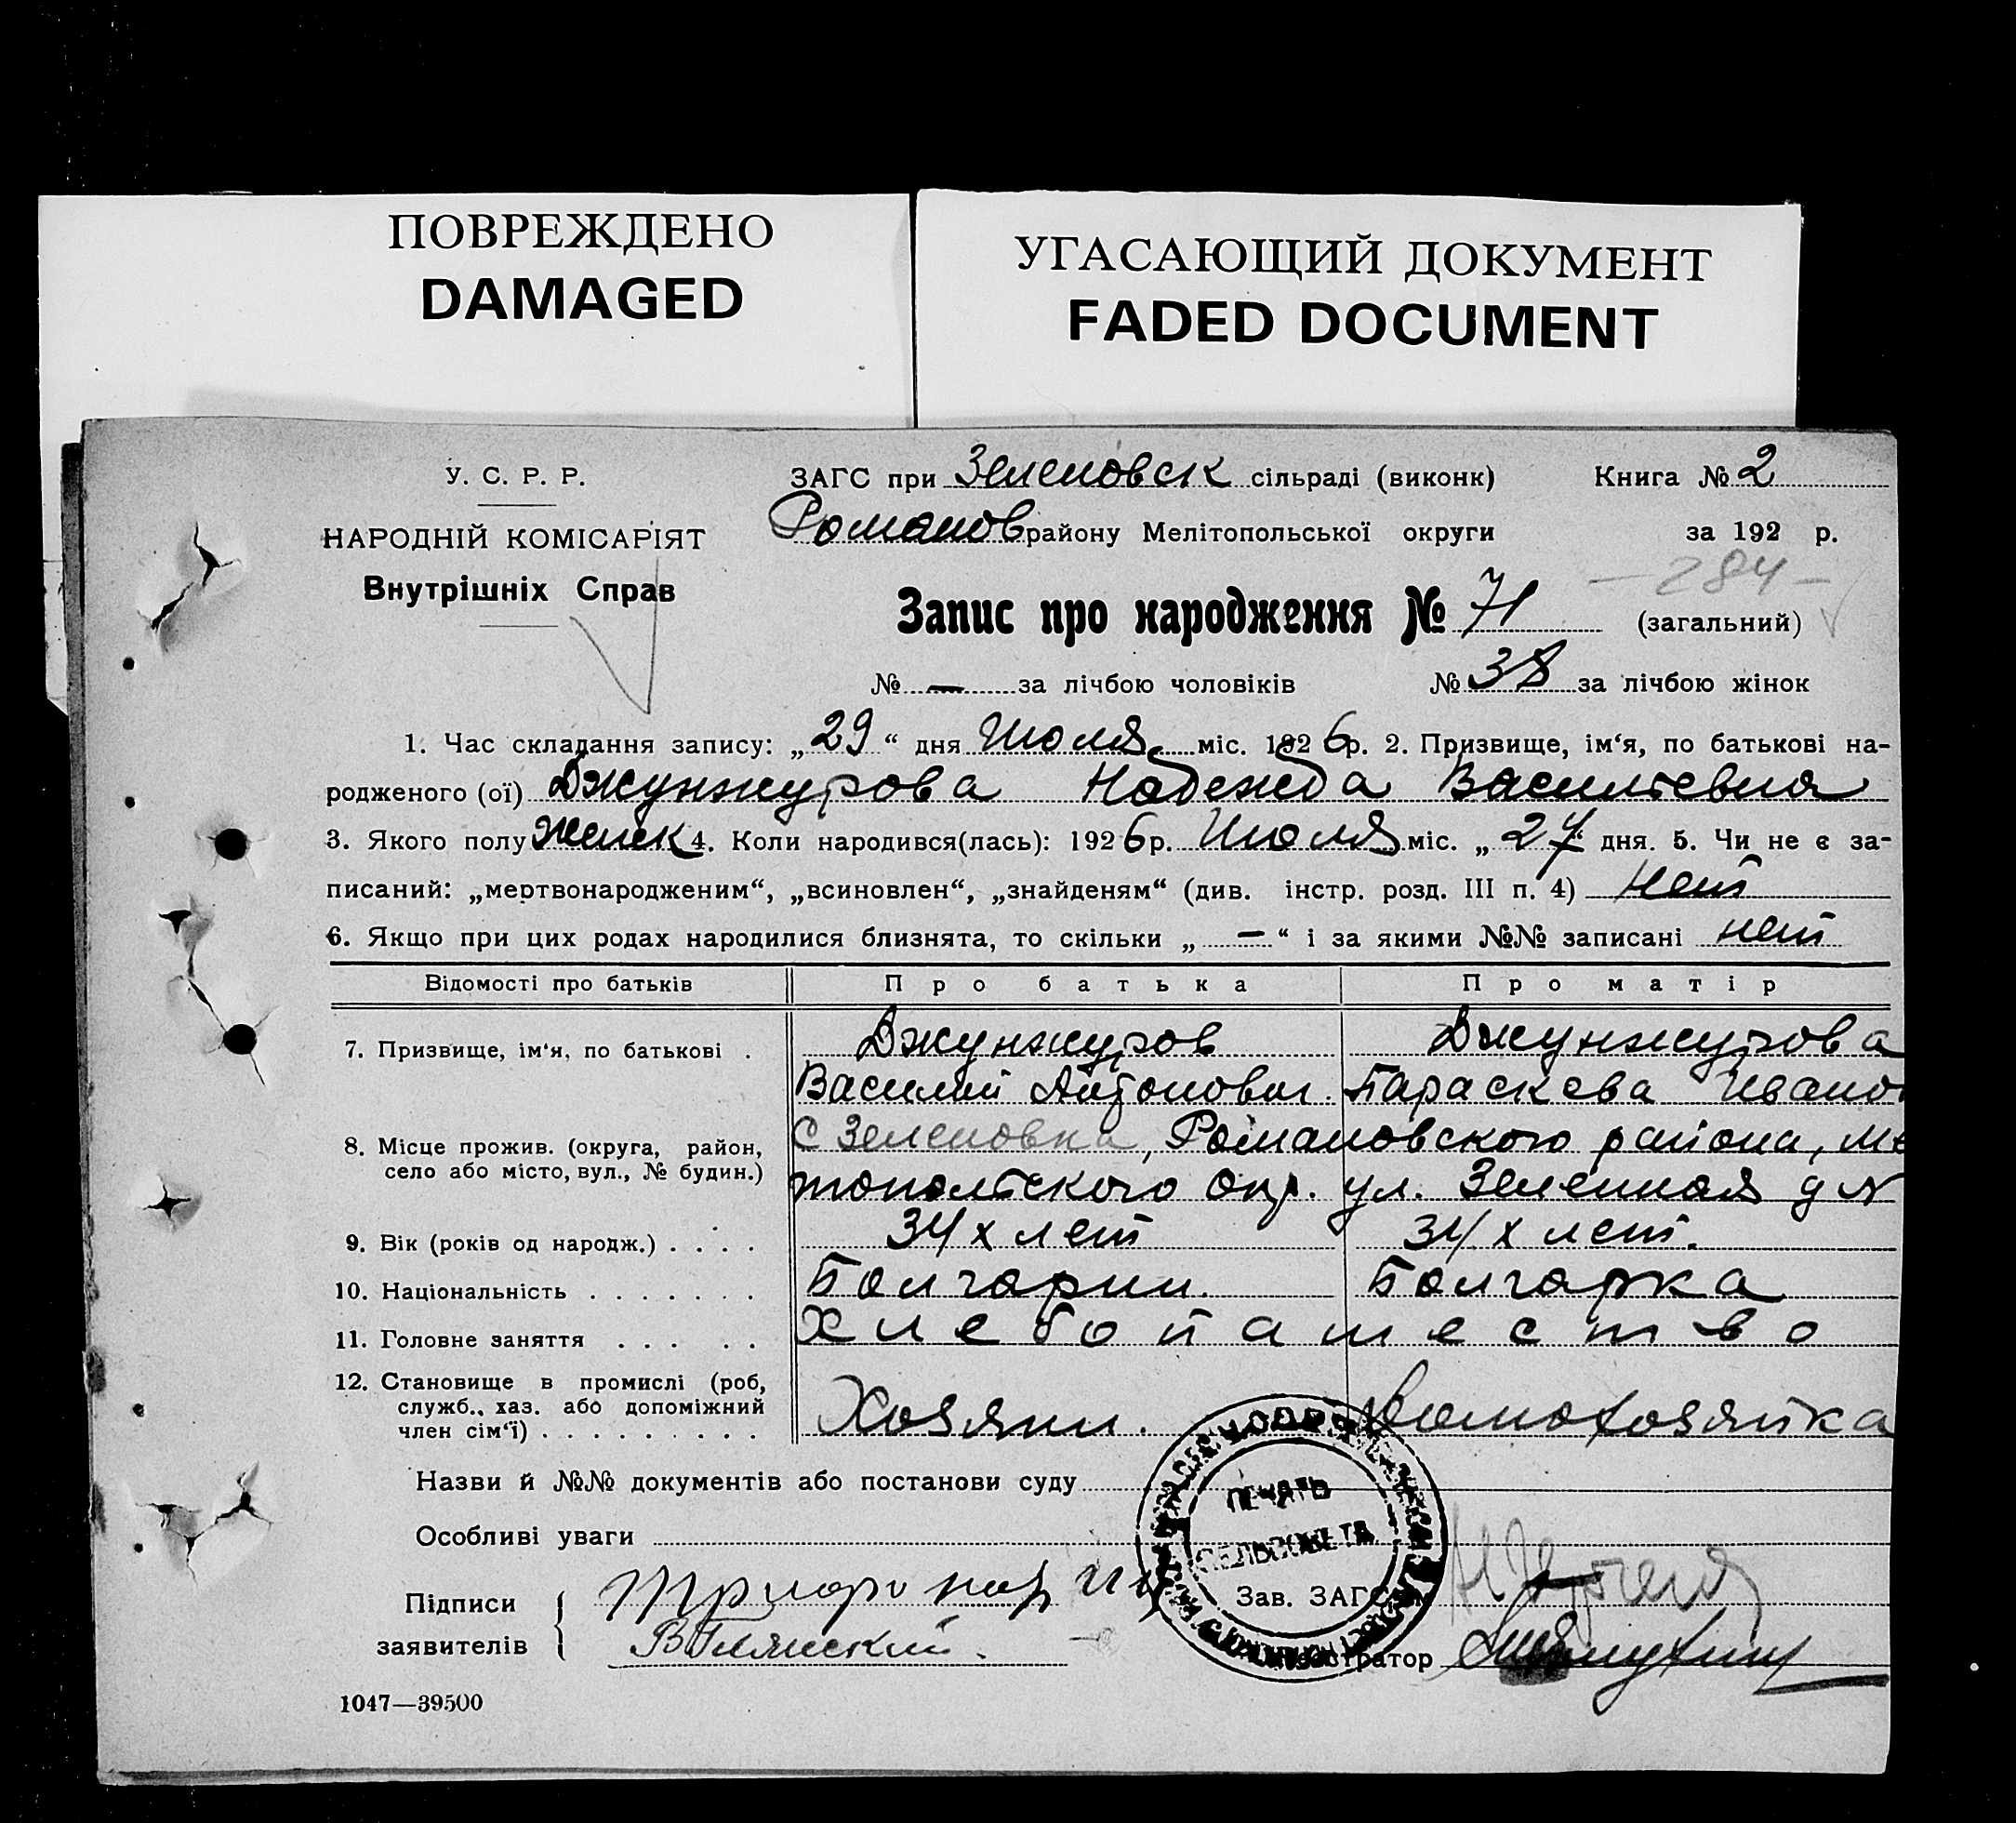 ПОВРЕЖДЕНО
DAMAGED
УГАСАЮЩИЙ ДОКУМЕНТ
FADED DOCUMENT
У. С. Р. Р.
НАРОДНІЙ КОМІСАРІЯТ
Внутрішніх Справ
ЗАГС при Зеленовск сільраді (виконк) Книга № 2
Романов району Мелітопольської округи за 192 р.
— 284 —
Запис про народження № 71 (загальний)
№ — за лічбою чоловіків № 38 за лічбою жінок
1. Час складання запису: „29“ дня Июля міс. 1926 р. 2. Призвище, ім‘я, по батькові на-
родженого (ої) Джунжурова Надежда Васильевна
3. Якого полу Женск 4. Коли народився(лась): 1926 р. Июля міс. „27“ дня. 5. Чи не є за-
писаний: „мертвонародженим“, „всиновлен“, „знайденям“ (див. інстр. розд. III п. 4) Нет
6. Якщо при цих родах народилися близнята, то скільки „—“ і за якими №№ записані нет
Відомості про батьків Про батька Про матір
7. Призвище, ім‘я, по батькові . Джунжуров Джунжурова
Василий Антонович. Параскева Ивано
8. Місце прожив. (округа, район,
село або місто, вул., № будин.)
с Зеленовка, Романовского района, Ме
топольского Окр. ул. Зеленная д №
9. Вік (років од народж.) . . . . 34х лет 34х лет.
10. Національність . . . . . . . Болгарин. Болгарка
11. Головне заняття . . . . . Хлебопашество
12. Становище в промислі (роб,
служб., хаз. або допоміжний
член сім‘ї) . . . . . . . . . Хозяин. Домохозяйка
Назви й №№ документів або постанови суду
Особливі уваги
ПЕЧАТЬ
СЕЛЬСОВЕТА
Підписи
заявителів
Зав. ЗАГС
1047—39500